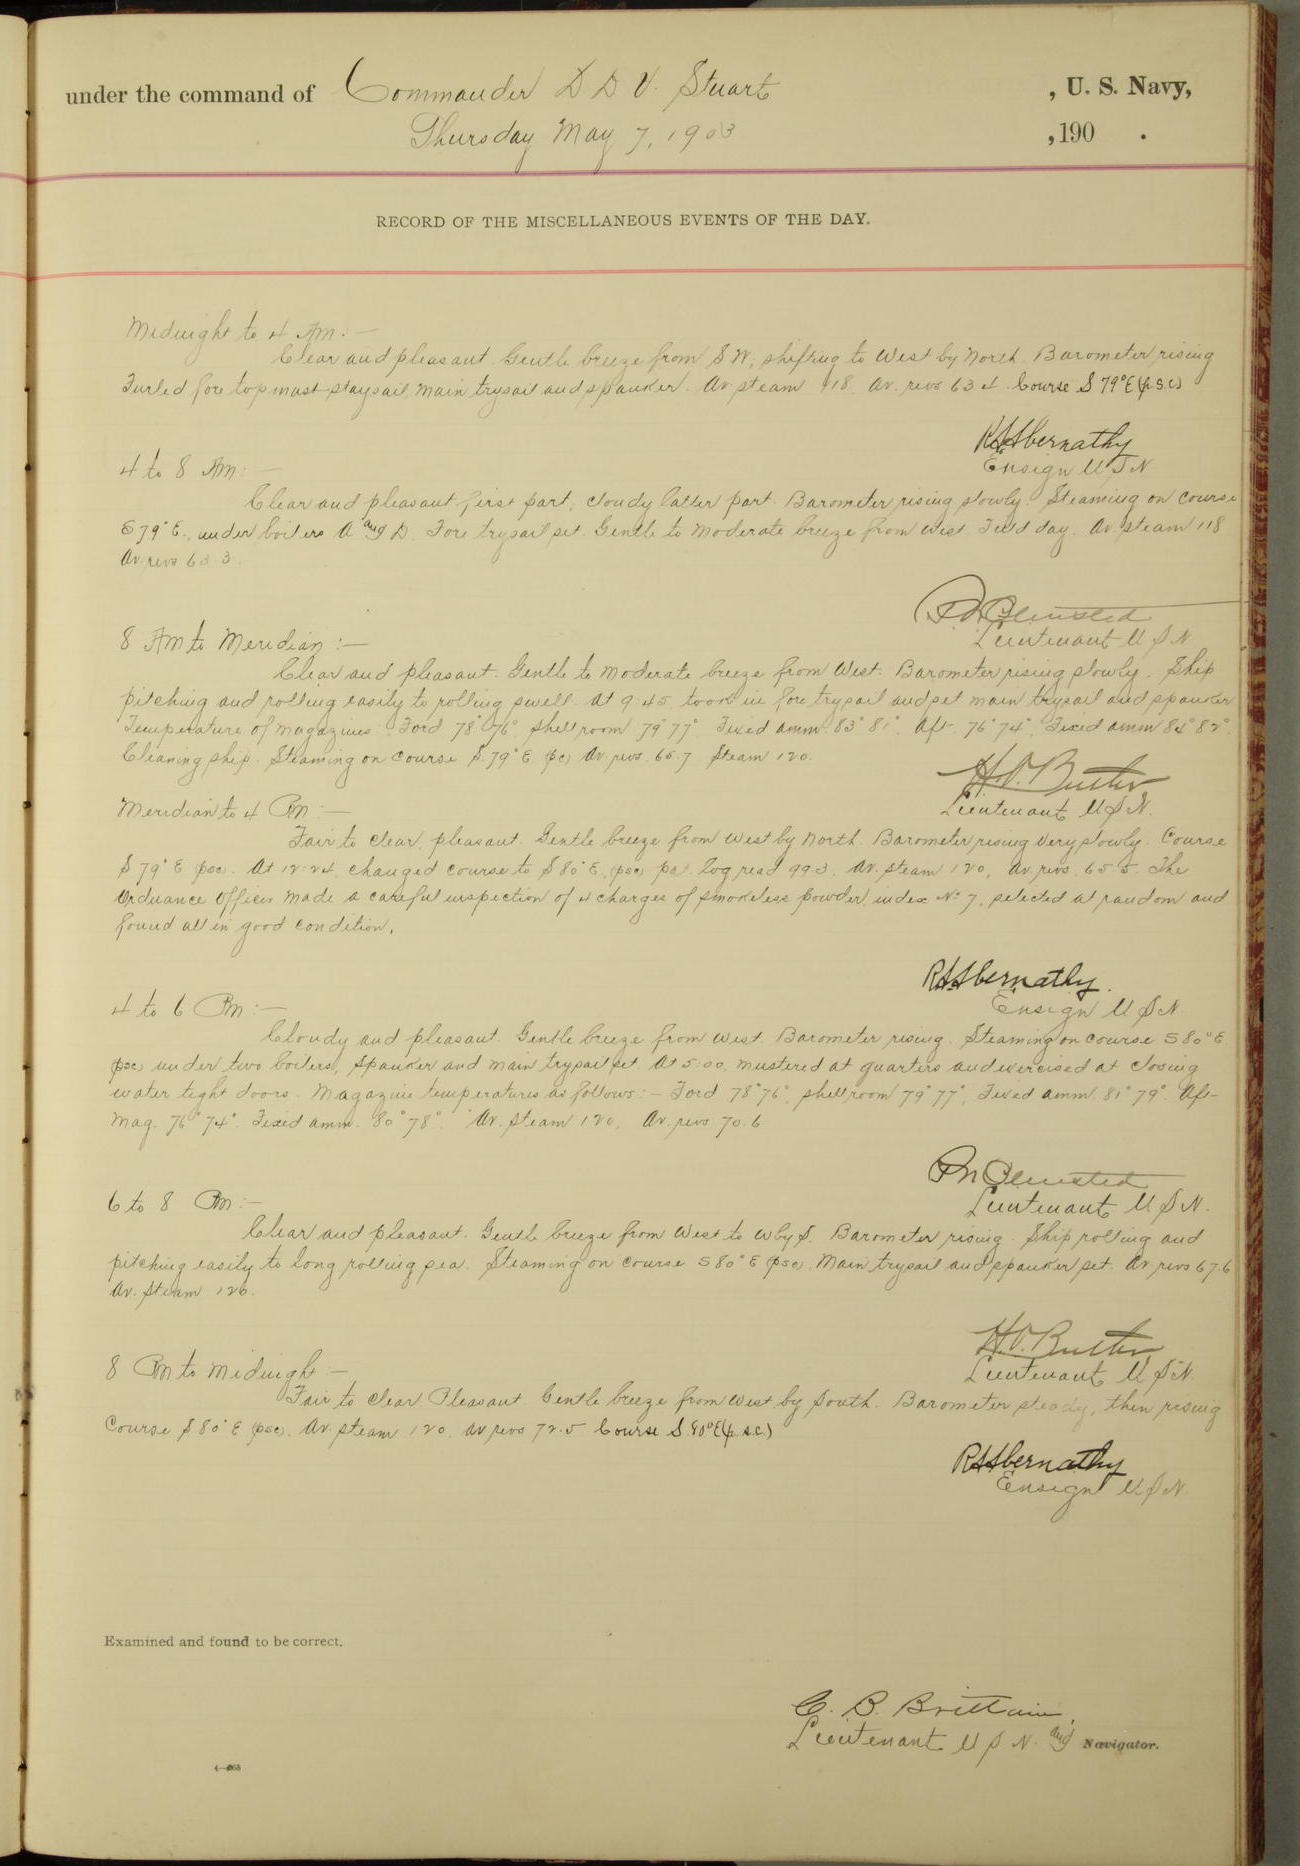 under the command of Commander D D V. Stuart, U. S. Navy,
Thursday May 7, 1903, 190 .
RECORD OF THE MISCELLANEOUS EVENTS OF THE DAY.
Midnight to 4 Am:—
Clear and pleasant. Gentle breeze from S W, shifting to West by North. Barometer rising
Furled fore topmast staysail, main trysail and spanker. Av. steam 118. Av. revs 63.4. Course S 79° E (p.s.c)
R Abernathy
Ensign U S N
4 to 8 Am:—
Clear and pleasant first part, cloudy latter part. Barometer rising slowly. Steaming on course
S 79° E., under boilers A and D. Fore trysail set. Gentle to moderate breeze from West. Field day. Av. steam 118
Av. revs 63.3.
Olmsted
Lieutenant U S N
8 Am to Meridian:—
Clear and pleasant. Gentle to moderate breeze from West. Barometer rising slowly. Ship
pitching and rolling easily to rolling swell. At 9.45 took in fore trysail and set main trysail and spanker
Temperature of magazines: Ford 78° 76°, shell room 79° 77°, Fixed amm. 83° 81°. Aft 76° 74°, Fixed amm 84° 82°.
Cleaning ship. Steaming on course S. 79° E (psc) Av. revs. 65.7 Steam 120.
Lieutenant U S N.
Meridian to 4 Pm:—
Fair to clear, pleasant. Gentle breeze from West by North. Barometer rising very slowly. Course
S 79° E (psc). At 12.24, changed course to S 80° E, (psc) pat. log read 99.3. Av. steam 120, Av. revs. 65.5. The
Ordnance Officer made a careful inspection of 4 charges of smokeless powder, index No 7, selected at random and
found all in good condition.
R Abernathy.
Ensign U S N.
4 to 6 Pm:—
Cloudy and pleasant. Gentle breeze from West. Barometer rising. Steaming on course S 80° E
(psc) under two boilers, spanker and main trysail set. At 5.00, mustered at quarters and exercised at closing
water tight doors. Magazine temperatures as follows:— Ford 78° 76°, shell room 79° 77°, Fixed amm. 81° 79°. Aft
Mag. 76° 74°. Fixed amm. 80° 78°. Av. steam 120, Av. revs 70.6
Olmsted
Lieutenant U S N.
6 to 8 Pm:—
Clear and pleasant. Gentle breeze from West to W by S. Barometer rising. Ship rolling and
pitching easily to long rolling sea. Steaming on course S 80° E (psc). Main trysail and spanker set. Av revs 67.6
Av. steam 120.
Lieutenant U S N.
8 Pm to Midnight—
Fair to clear. Pleasant. Gentle breeze from West by South. Barometer steady, then rising
Course S 80° E (psc). Av. steam 120, av revs 72.5 Course S. 80° E (p.s.c.)
R Abernathy
Ensign U S N
Examined and found to be correct.
C. B. Brittain,
Lieutenant U S N. and Navigator.